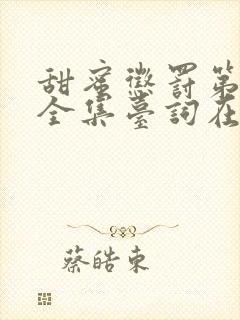 甜蜜懲罰第
全集臺詞在
蔡皓東